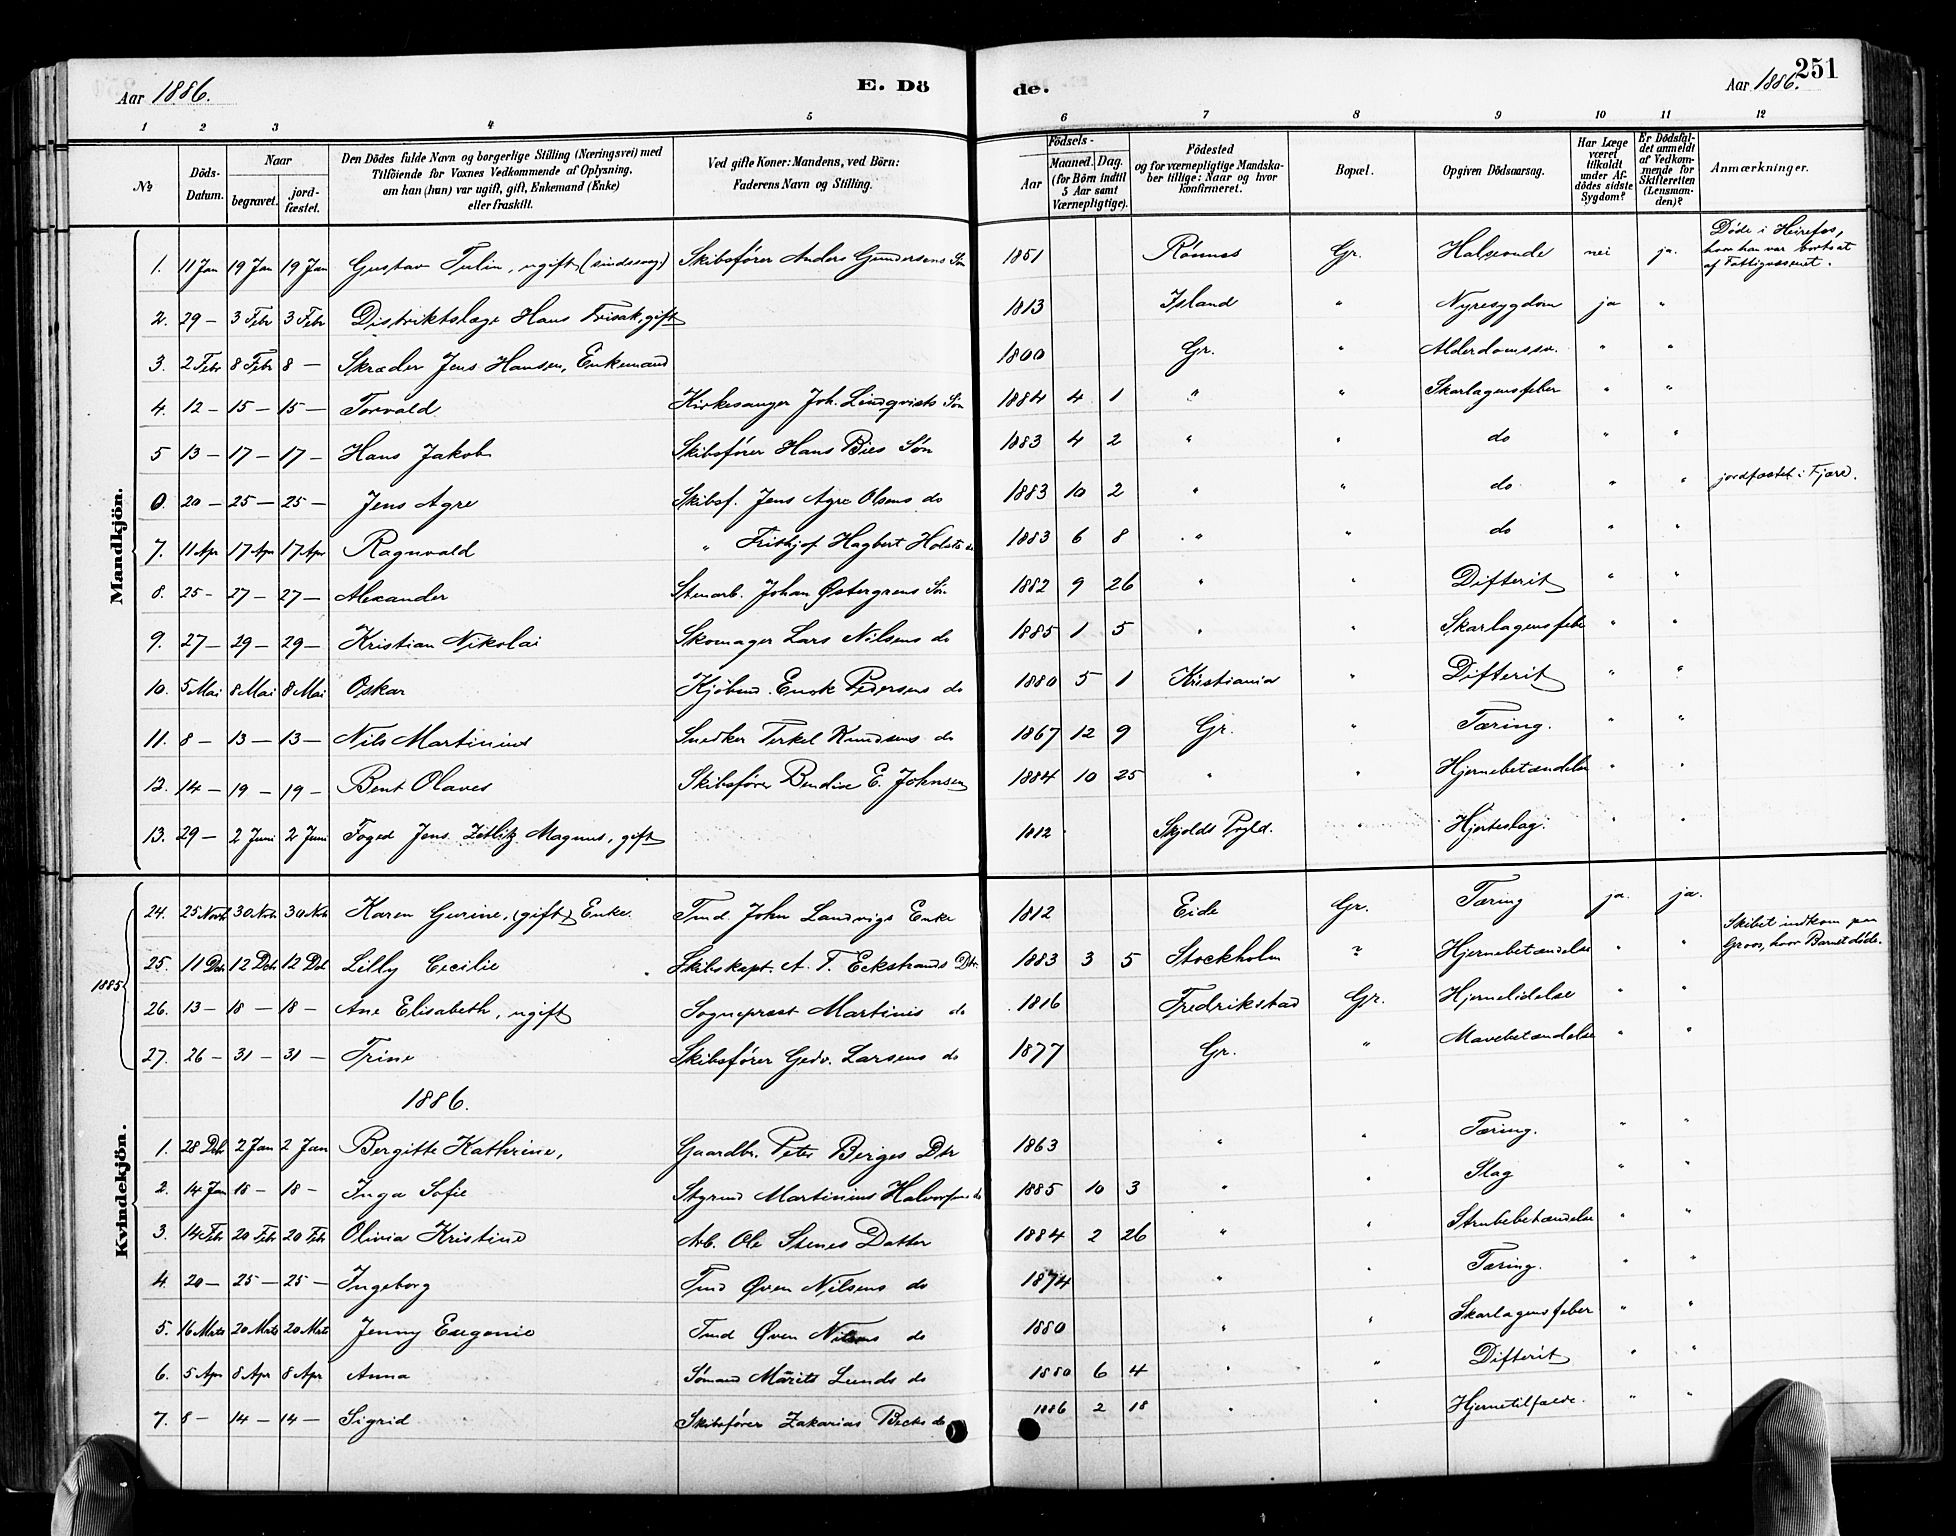 Aar 1886. E. Dö de. Aar 1886. 251
1 2 3 4 5 6 7 8 9 10 11 12
№
Döds-Datum.
Naar
begravet.
jord-fæstet.
Den Dödes fulde Navn og borgerlige Stilling (Næringsvei) med
Tilföiende for Voxnes Vedkommende af Oplysning,
om han (hun) var ugift, gift, Enkemand (Enke)
eller fraskilt.
Ved gifte Koner: Mandens, ved Börn:
Faderens Navn og Stilling.
Födsels-
Aar
Maaned. Dag.
(for Börn indtil
5 Aar samt
Værnepligtige).
Födested
og for værnepligtige Mandska-
ber tillige: Naar og hvor
konfirmeret.
Bopæl.
Opgiven Dödsaarsag.
Har Læge
været
tilkaldt
under Af-
dödes sidste
Sygdom?
Er Dödsfal-
det anmeldt
af Vedkom-
mende for
Skifteretten
(Lensman-
den)?
Anmærkninger.
Mandkjön.
1. 11 Jan 19 Jan 19 Jan Gustav Tulin, ugift (sindssvag) Skibsfører Anders Gundersens Søn 1851 Rønnes Gr. Halsonde nei ja. Døde i Heirefos, hvor han var bortsat af Fattigvæsenet.
2. 29 — 3 Febr 3 Febr Distriktslæge Hans Frisak, gift 1813 Island " Nyresygdom ja "
3. 2 Febr 8 Febr 8 — Skræder Jens Hansen, Enkemand 1800 Gr. " Alderdomssv. " "
4. 12 — 15 — 15 — Torvald Kirkesanger Joh. Lindqvists Søn 1884 4 1 " " Skarlagensfeber " "
5 13 — 17 — 17 — Hans Jakob Skibsfører Hans Bies Søn 1883 4 2 " " do " "
6. 20 — 25 — 25 — Jens Agre Skibsf. Jens Agre Olsens do 1883 10 2 " " do " " jordfæstet i Fjære.
7. 11 Apr 17 Apr 17 Apr Ragnvald " Frithjof Hagbert Holsts do 1883 6 8 " " do " "
8. 25 - 27 — 27 — Alexander Stenarb. Johan Østergrens Søn 1882 9 26 " " Difterit " "
9. 27 — 29 — 29 — Kristian Nikolai Skomager Lars Nilsens do 1885 1 5 " " Skarlagensfeber " "
10. 5 Mai 8 Mai 8 Mai Oskar Kjøbmd. Pedersens do 1880 5 1 Kristiania " Difterit " "
11. 8 — 13 — 13 — Nils Martinius Snedker Terkel Knudsens do 1867 12 9 Gr. " Tæring. " "
12. 14 — 19 — 19 — Bent Olaves Skibsfører Bendix E. Johnsen 1884 10 25 " " Hjernebetændelse " "
13. 29 — 2 Juni 2 Juni Foged Jens Zetlitz Magnus, gift 1812 Skjolds Prgld. " Hjerteslag. " "
Kvindekjön.
1885
24. 25 Novb 30 Nvb 30 Nvb Karen Gurine, (gift) Enke. Tmd. John Landvigs Enke 1812 Eide Gr. Tæring ja. ja.
25. 11 Dcb. 12 Dcb 12 Dcb Lilly Cecilie Skibskapt. A. T. Eckstrands Dtr. 1883 3 5 Stockholm ? Hjernebetændelse " " Skibet indkom paa Groos, hvor Barnet døde.
26. 13 — 18 — 18 — Ane Elisabeth, ugift Sogneprest Martinis do 1816 Fredrikstad Gr. Hjernelidelse " "
27. 26 — 31 — 31 — Trine Skibsfører Gedv. Larsens do 1877 Gr. " Mavebetændelse " "
1886.
1. 28 Dcb 2 Jan 2 Jan Bergitte Kathrine, Gaardbr. Peter Berges Dtr 1863 " " Tæring. " "
2. 14 Jan 18 — 18 — Inga Sofie Styrmd Martinius Halvorsens do 1885 10 3 " " Slag " "
3. 14 Feb 20 Feb 20 Feb Olivia Kristine Arb. Ole Stenes Datter 1884 2 26 " " Strubebetændelse " "
4. 20 — 25 — 25 — Ingeborg Tmd Øven Nilsens do 1874 " " Tæring. " "
5. 16 Mrts 20 Mrts 20 Mrts Jenny Eugenie Tmd Øven Nilsens do 1880 " " Skarlagensfeber " "
6. 5 Apr 8 Apr 8 Apr Anna Sømand Mårits Lunds do 1880 6 4 " " Difterit " "
7. 8 — 14 — 14 — Sigrid Skibsfører Zakarias Becks do 1886 2 18 " " Hjernetilfælde. " "